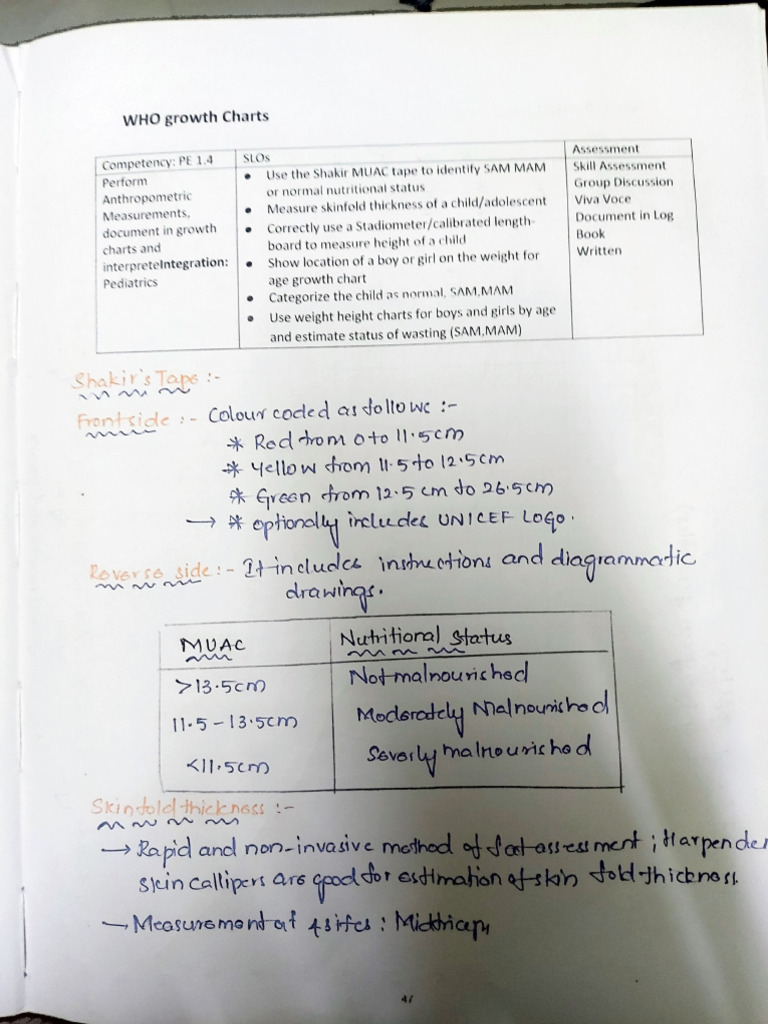 WHO growth Charts
Competency: PE 1.4
Perform
Anthropometric
Measurements,
document in growth
charts and
interpreteIntegration:
Pediatrics
SLOs
• Use the Shakir MUAC tape to identify SAM MAM
or normal nutritional status
• Measure skinfold thickness of a child/adolescent
• Correctly use a Stadiometer/calibrated length-
board to measure height of a child
• Show location of a boy or girl on the weight for
age growth chart
• Categorize the child as normal, SAM,MAM
• Use weight height charts for boys and girls by age
and estimate status of wasting (SAM,MAM)
Assessment
Skill Assessment
Group Discussion
Viva Voce
Document in Log
Book
Written
Shakir's Tape :-
Front side :- Colour coded as follows :-
* Red from 0 to 11.5cm
* Yellow from 11.5 to 12.5cm
* Green from 12.5 cm to 26.5cm
→ * optionally includes UNICEF LOGO.
Reverse side :- It includes instructions and diagrammatic
drawings.
MUAC Nutritional Status
>13.5cm Not malnourished
11.5 - 13.5cm Moderately Malnourished
<11.5cm Severly malnourished
Skinfold thickness :-
→ Rapid and non-invasive method of fat assessment ; Harpenden
skin callipers are good for estimation of skin fold thickness.
→ Measurement at 4 sites : Midtricep,
47